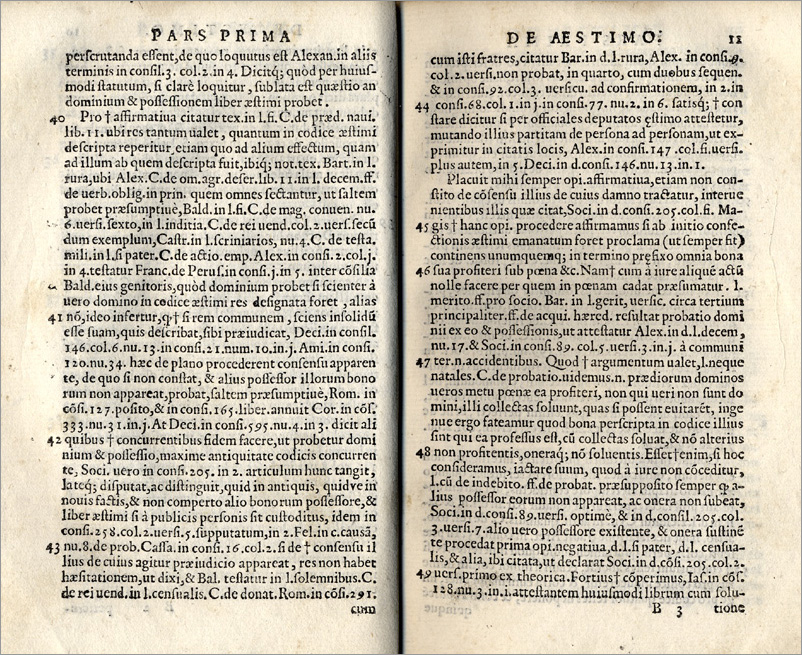 PARS PRIMA
perscrutanda essent, de quo loquutus est Alexan. in aliis
terminis in consil. 3. col. 2. in 4. Dicitq; quòd per huius-
modi statutum, si clarè loquitur, sublata est quæstio an
dominium & possessionem liber æstimi probet.
40 Pro † affirmatiua citatur tex. in l. fi. C. de præd. naui.
lib. 11. ubi res tantum ualet, quantum in codice æstimi
descripta reperitur, etiam quo ad alium effectum, quam
ad illum ab quem descripta fuit, ibiq; not. tex. Bart. in l.
rura, ubi Alex. C. de om. agr. deser. lib. 11. in l. decem. ff.
de uerb. oblig. in prin. quem omnes sectantur, ut saltem
probet præsumptiuè, Bald. in l. fi. C. de mag. conuen. nu.
6. uersi. sexto, in l. inditia. C. de rei uend. col. 2. uers. secū
dum exemplum, Castr. in l. scriniarios, nu. 4. C. de testa.
mili. in l. si pater. C. de actio. emp. Alex. in consi. 2. col. j.
in 4. testatur Franc. de Perus. in consi. j. in 5. inter cōsilia
Bald. eius genitoris, quòd dominium probet si scienter à
uero domino in codice æstimi res designata foret, alias
41 nō, ideo infertur, q † si rem communem, sciens insolidū
esse suam, quis describat, sibi præiudicat, Deci. in consil.
146. col. 6. nu. 13. in consi. 21. num. 10. in j. Ami. in consi.
120. nu. 34. hæc de plano procederent consensu apparen
te, de quo si non constat, & alius possessor illorum bono
rum non appareat, probat, saltem præsumptiuè, Rom. in
cōsi. 127. posito, & in consi. 165. liber. annuit Cor. in cōs.
333. nu. 31. in. j. At Deci. in consi. 595. nu. 4. in 3. dicit ali
42 quibus † concurrentibus fidem facere, ut probetur domi
nium & possessio, maxime antiquitate codicis concurren
te, Soci. uero in consi. 205. in 2. articulum hunc tangit,
lateq; disputat, ac distinguit, quid in antiquis, quidve in
nouis factis, & non comperto alio bonorum possessore, &
liber æstimi si à publicis personis sit custoditus, idem in
consi. 258. col. 2. uersi. 5. supputatum, in 2. Fel. in c. causā,
43 nu. 8. de prob. Cassa. in consi. 16. col. 2. si de † consensu il
lius de cuius agitur præiudicio appareat, res non habet
hæsitationem, ut dixi, & Bal. testatur in l. solemnibus. C.
de rei uend. in l. censualis. C. de donat. Rom. in cōsi. 291.
cum
DE AESTIMO. 11
cum isti fratres, citatur Bar. in d. l. rura, Alex. in consi. 9.
col. 2. uersi. non probat, in quarto, cum duobus sequen.
& in consi. 92. col. 3. uersicu. ad confirmationem, in 2. in
44 consi. 68. col. 1. in j. in consi. 77. nu. 2. in 6. satisq; † con
stare dicitur si per officiales deputatos ęstimo attestetur,
mutando illius partitam de persona ad personam, ut ex-
primitur in citatis locis, Alex. in consi. 147. col. fi. uersi.
plus autem, in 5. Deci. in d. consi. 146. nu. 13. in. 1.
Placuit mihi semper opi. affirmatiua, etiam non con-
stito de cōsensu illius de cuius damno tractatur, interue
nientibus illis quæ citat, Soci. in d. consi. 205. col. fi. Ma-
45 gis † hanc opi. procedere affirmamus si ab initio confe-
ctionis æstimi emanatum foret proclama (ut semper fit)
continens unumquemq; in termino pręfixo omnia bona
46 sua profiteri sub pœna &c. Nam † cum à iure aliquē actū
nolle facere per quem in pœnam cadat præsumatur. l.
merito. ff. pro socio. Bar. in l. gerit, uersic. circa tertium
principaliter. ff. de acqui. hæred. resultat probatio domi
nii ex eo & possessionis, ut attestatur Alex. in d. l. decem,
nu. 17. & Soci. in consi. 89. col. 5. uersi. 3. in. j. à communi
47 ter. n. accidentibus. Quod † argumentum ualet, l. neque
natales. C. de probatio. uidemus. n. prædiorum dominos
ueros metu pœnæ ea profiteri, non qui ueri non sunt do
mini, illi collectas soluunt, quas si possent euitarēt, inge
nue ergo fateamur quod bona perscripta in codice illius
sint qui ea professus est, cū collectas soluat, & nō alterius
48 non profitentis, oneraq; nō soluentis. Esset † enim, si hoc
consideramus, iactare suum, quod à iure non cōceditur,
l. cū de indebito. ff. de probat. præsupposito semper q a-
lius possessor eorum non appareat, ac onera non subeat,
Soci. in d. consi. 89. uersi. optimè, & in d. consil. 205. col.
3. uersi. 7. alio uero possessore existente, & onera sustinē
te procedat prima opi. negatiua, d. l. si pater, d. l. censua-
lis, & alia, ibi citata, ut declarat Soci. in d. cōsi. 205. col. 2.
49 uersi. primo ex theorica. Fortius † cōperimus, Ias. in cōs.
128. nu. 3. in. 1. attestantem huiusmodi librum cum solu-
B 3 tione